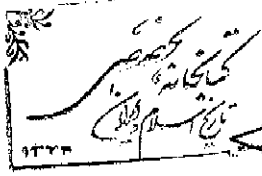 کتابخانه تخصصی
تاریخ اسلام و ایران
۱۳۲۳